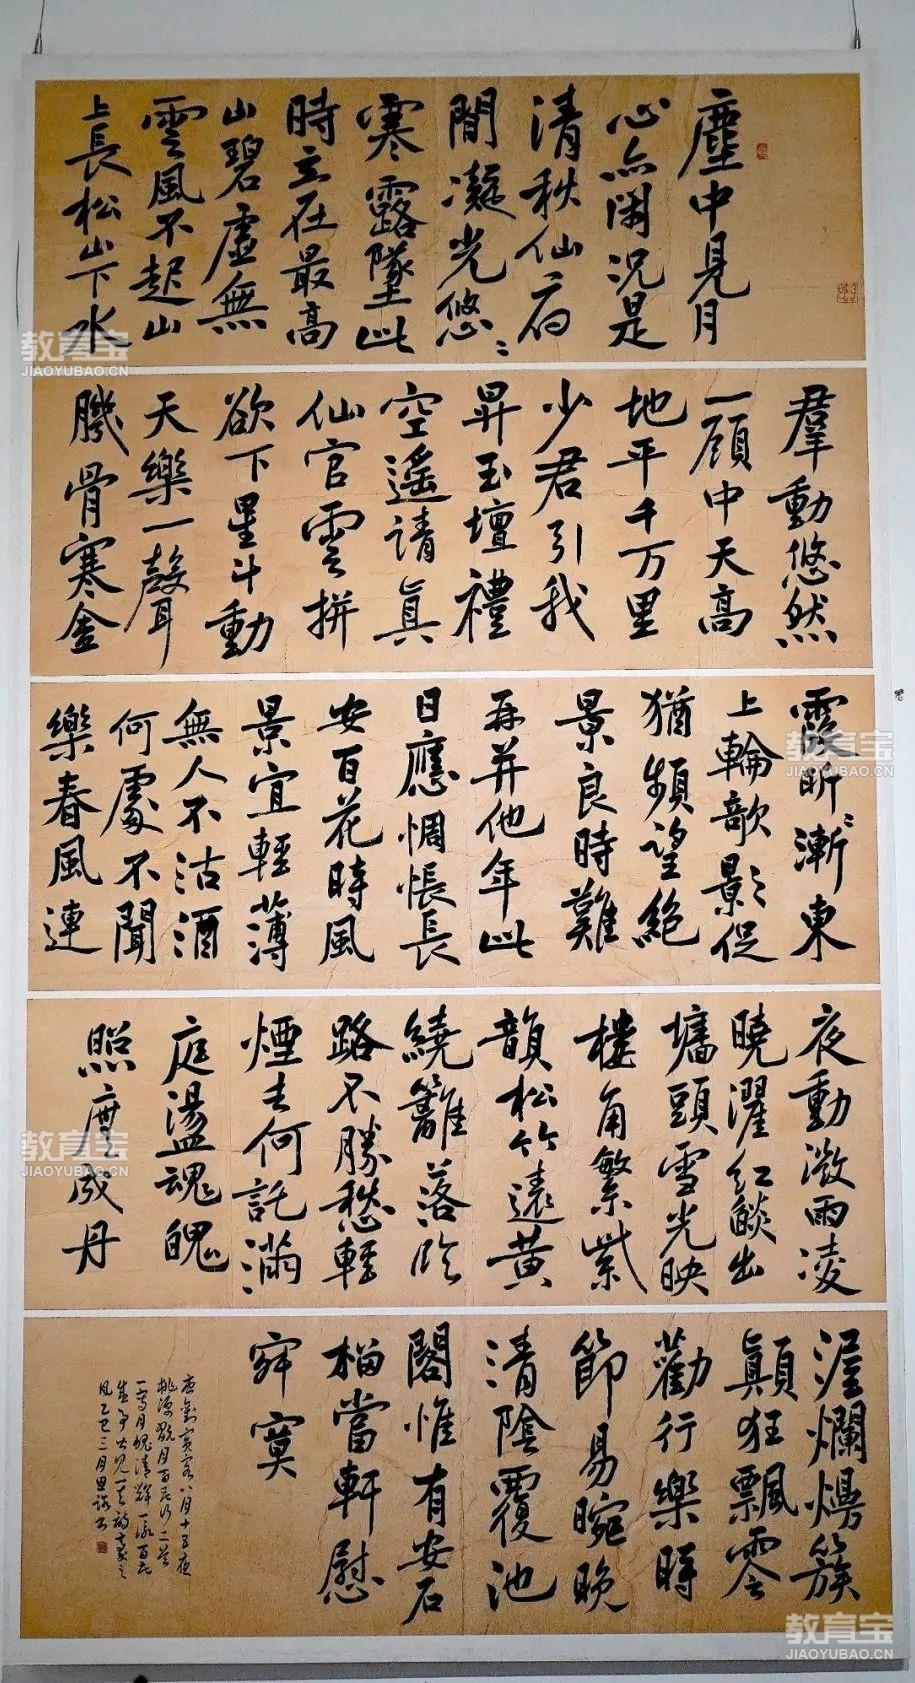 塵中見月
心亦閑況是
清秋仙府
間凝光悠〻
寒露墜此
時立在最高
山碧虛無
雲風不起山
上長松山下水
羣動悠然
一顧中天高
地平千万里
少君引我
昇玉壇禮
空遥請真
仙官雲拼
欲下星斗動
天樂一聲
骨寒金
霞昕〻漸東
上輪歌影促
猶頻望絕
景良時難
再并他年此
日應惆悵長
安百花時風
景宜輕薄
無人不沽酒
何處不聞
樂春風連
夜動微雨凌
曉濯紅燄出
墻頭雪光映
樓角繁紫
韻松竹遠黃
繞籬落臨
路不勝愁輕
煙去何託滿
庭盪魂魄
照廡成丹
渥爛熳簇
顛狂飄零
勸行樂時
節易晼晚
清陰覆池
閣惟有安石
榴當軒慰
寂寞
唐劉賓客八月十五夜
桃源翫月百花行二首
一写月魄清輝一詠百花
詩豪之
風乙巳三月書
教育宝
JIAOYUBAO.CN
教育宝
JIAOYUBAO.CN
教育宝
JIAOYUBAO.CN
教育宝
JIAOYUBAO.CN